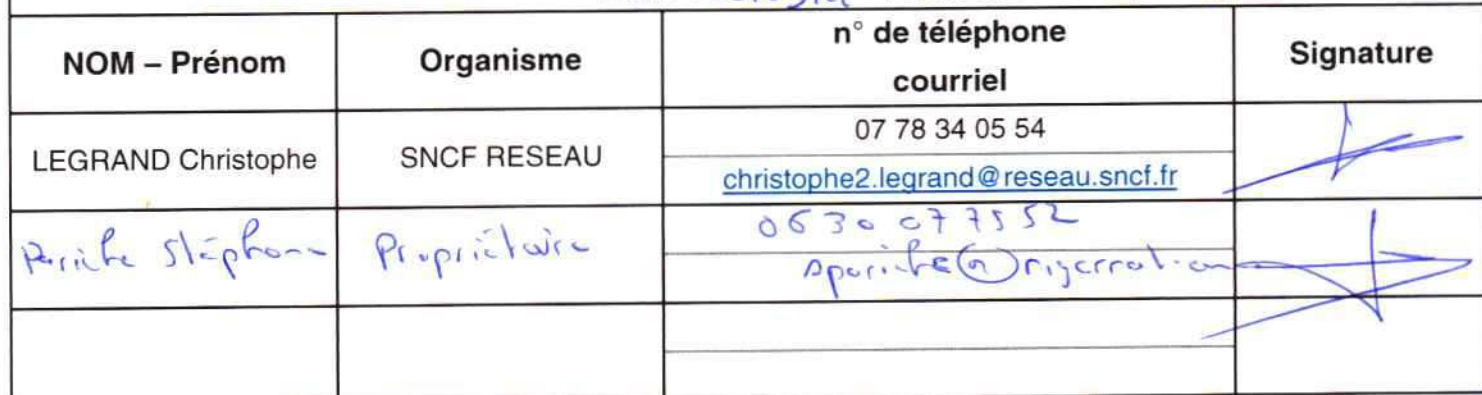 NOM – Prénom
Organisme
n° de téléphone
courriel
Signature
LEGRAND Christophe
SNCF RESEAU
07 78 34 05 54
christophe2.legrand@reseau.sncf.fr
Stéphane
Propriétaire
06 30 07 75 52